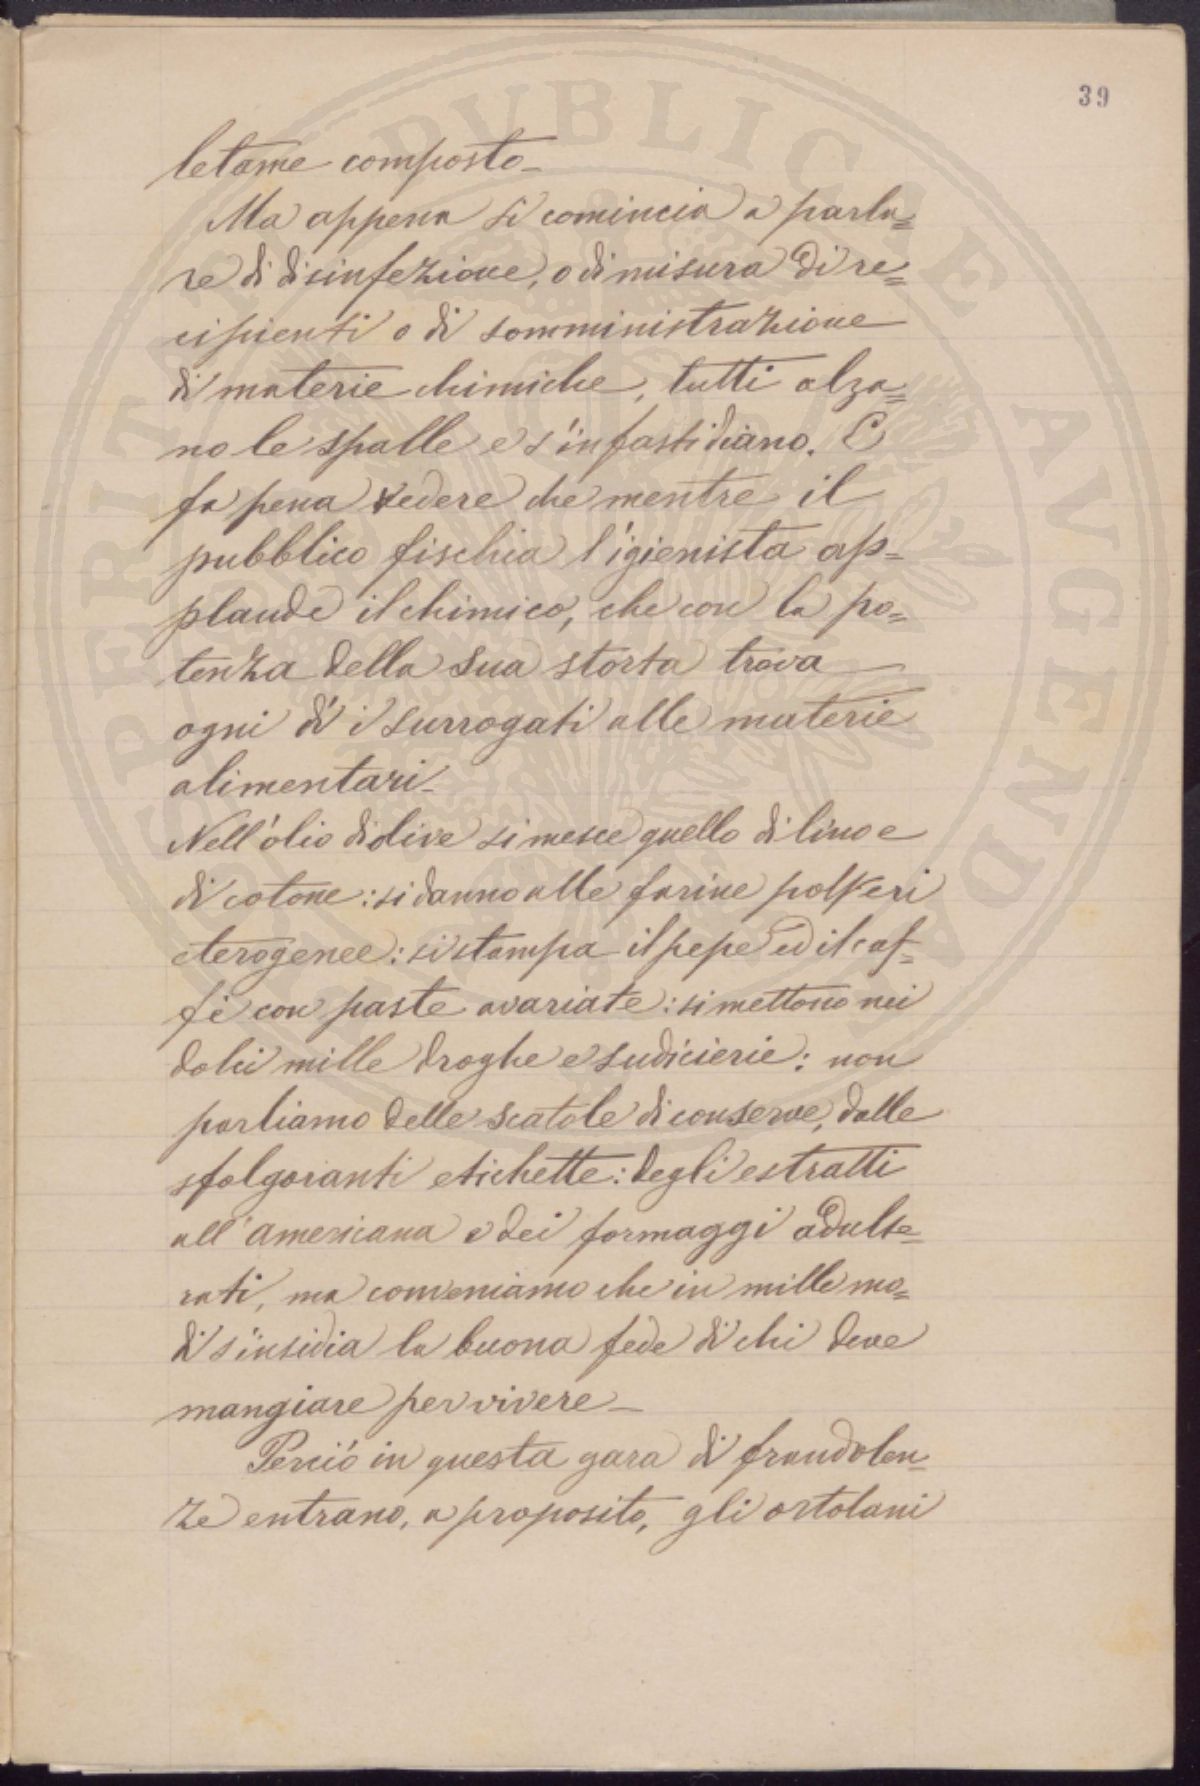 39
letame composto_
Ma appena si comincia a parla=
re di disinfezione, o di misura di re=
cipienti o di somministrazione
di materie chimiche, tutti alza=
no le spalle e s'infastidiano. E
fa pena vedere che mentre il
pubblico fischia l'igienista ap=
plaude il chimico, che con la po=
tenza della sua storta trova
ogni dì i surrogati alle materie
alimentari_
Nell'olio di olive si mesce quello di lino e
di cotone: si danno alle farine polveri
eterogenee: si stampa il pepe ed il caf=
fè con paste avariate: si mettono nei
dolci mille droghe e sudicierie: non
parliamo delle scatole di conserve, dalle
sfolgoranti etichette: degli estratti
all'americana e dei formaggi adulte=
rati, ma conveniamo che in mille mo=
di s'insidia la buona fede di chi deve
mangiare per vivere_
Perciò in questa gara di fraudolen=
ze entrano, a proposito, gli ortolani
PVBLICAE AVGENDAE
PROSPERITATIS